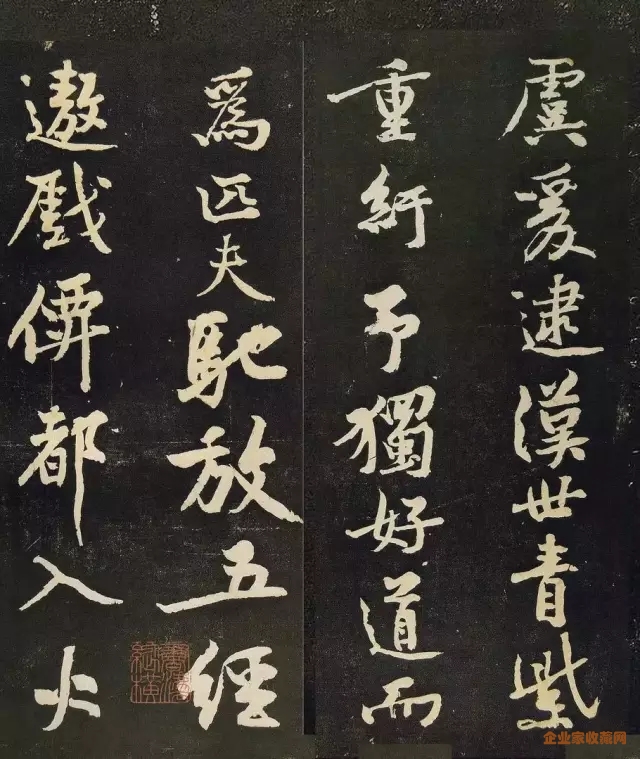 虞爰逮漢世青紫
重紆予獨好道而
爲匹夫馳放五經
遨戲僊都入火
企业家收藏网